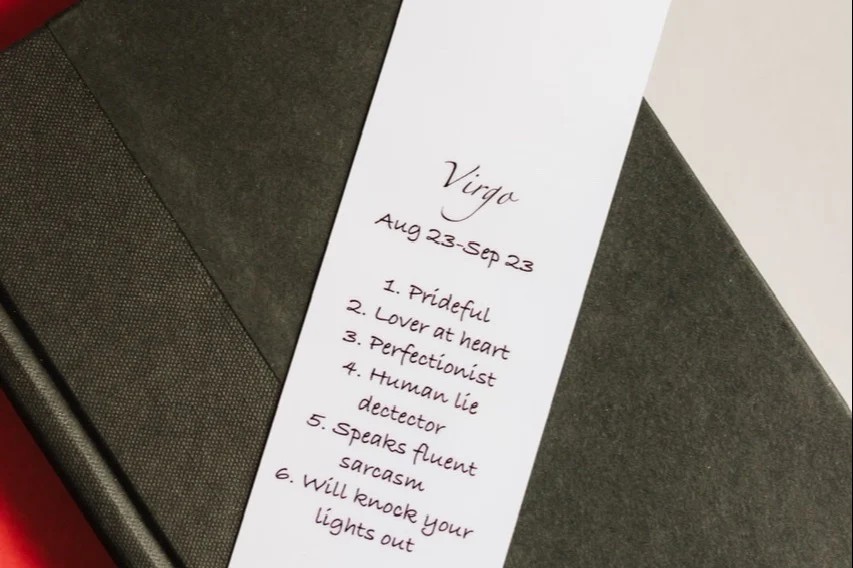 Virgo
Aug 23-Sep 23
1. Prideful
2. Lover at heart
3. Perfectionist
4. Human lie
dectector
5. Speaks fluent
sarcasm
6. Will knock your
lights out